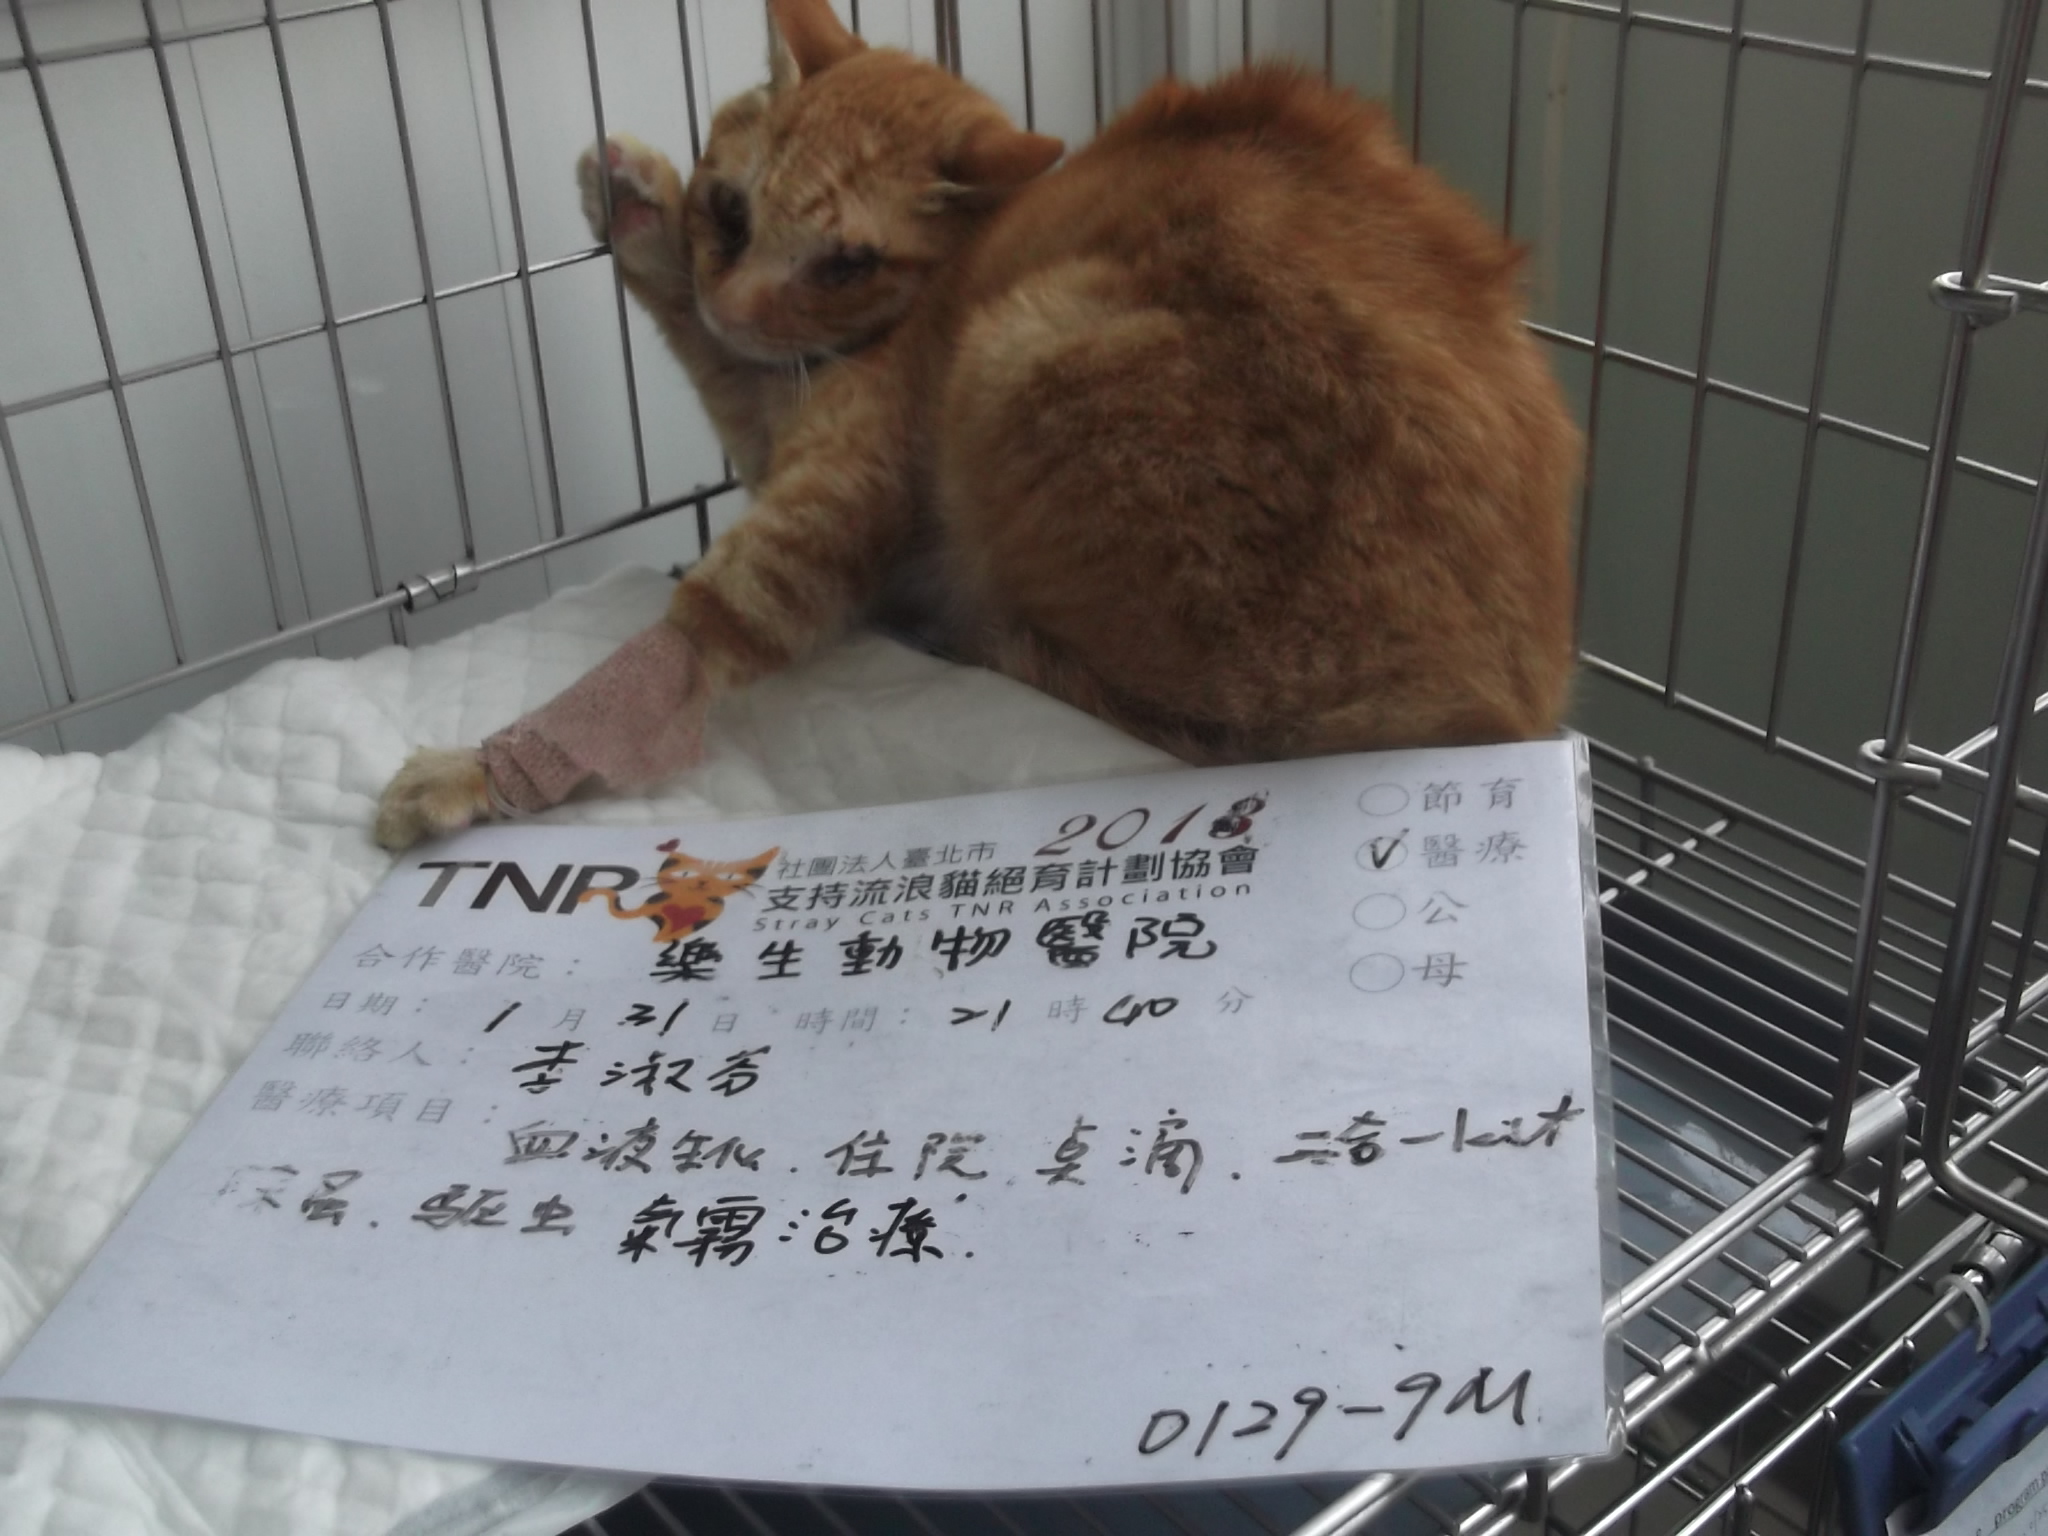 2018
TNR
社團法人臺北市
支持流浪貓絕育計劃協會
Stray Cats TNR Association
節育
V 醫療
公
母
合作醫院： 樂生動物醫院
日期： 1 月 31 日 時間： 21 時 40 分
聯絡人： 李淑芬
醫療項目：
血液生化. 住院. 點滴. 三合一kit
驅虫 氣霧治療.
0129-9M
program